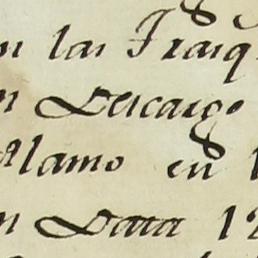 n las Fraiq
n Descargo
Alamo en
n Data 12